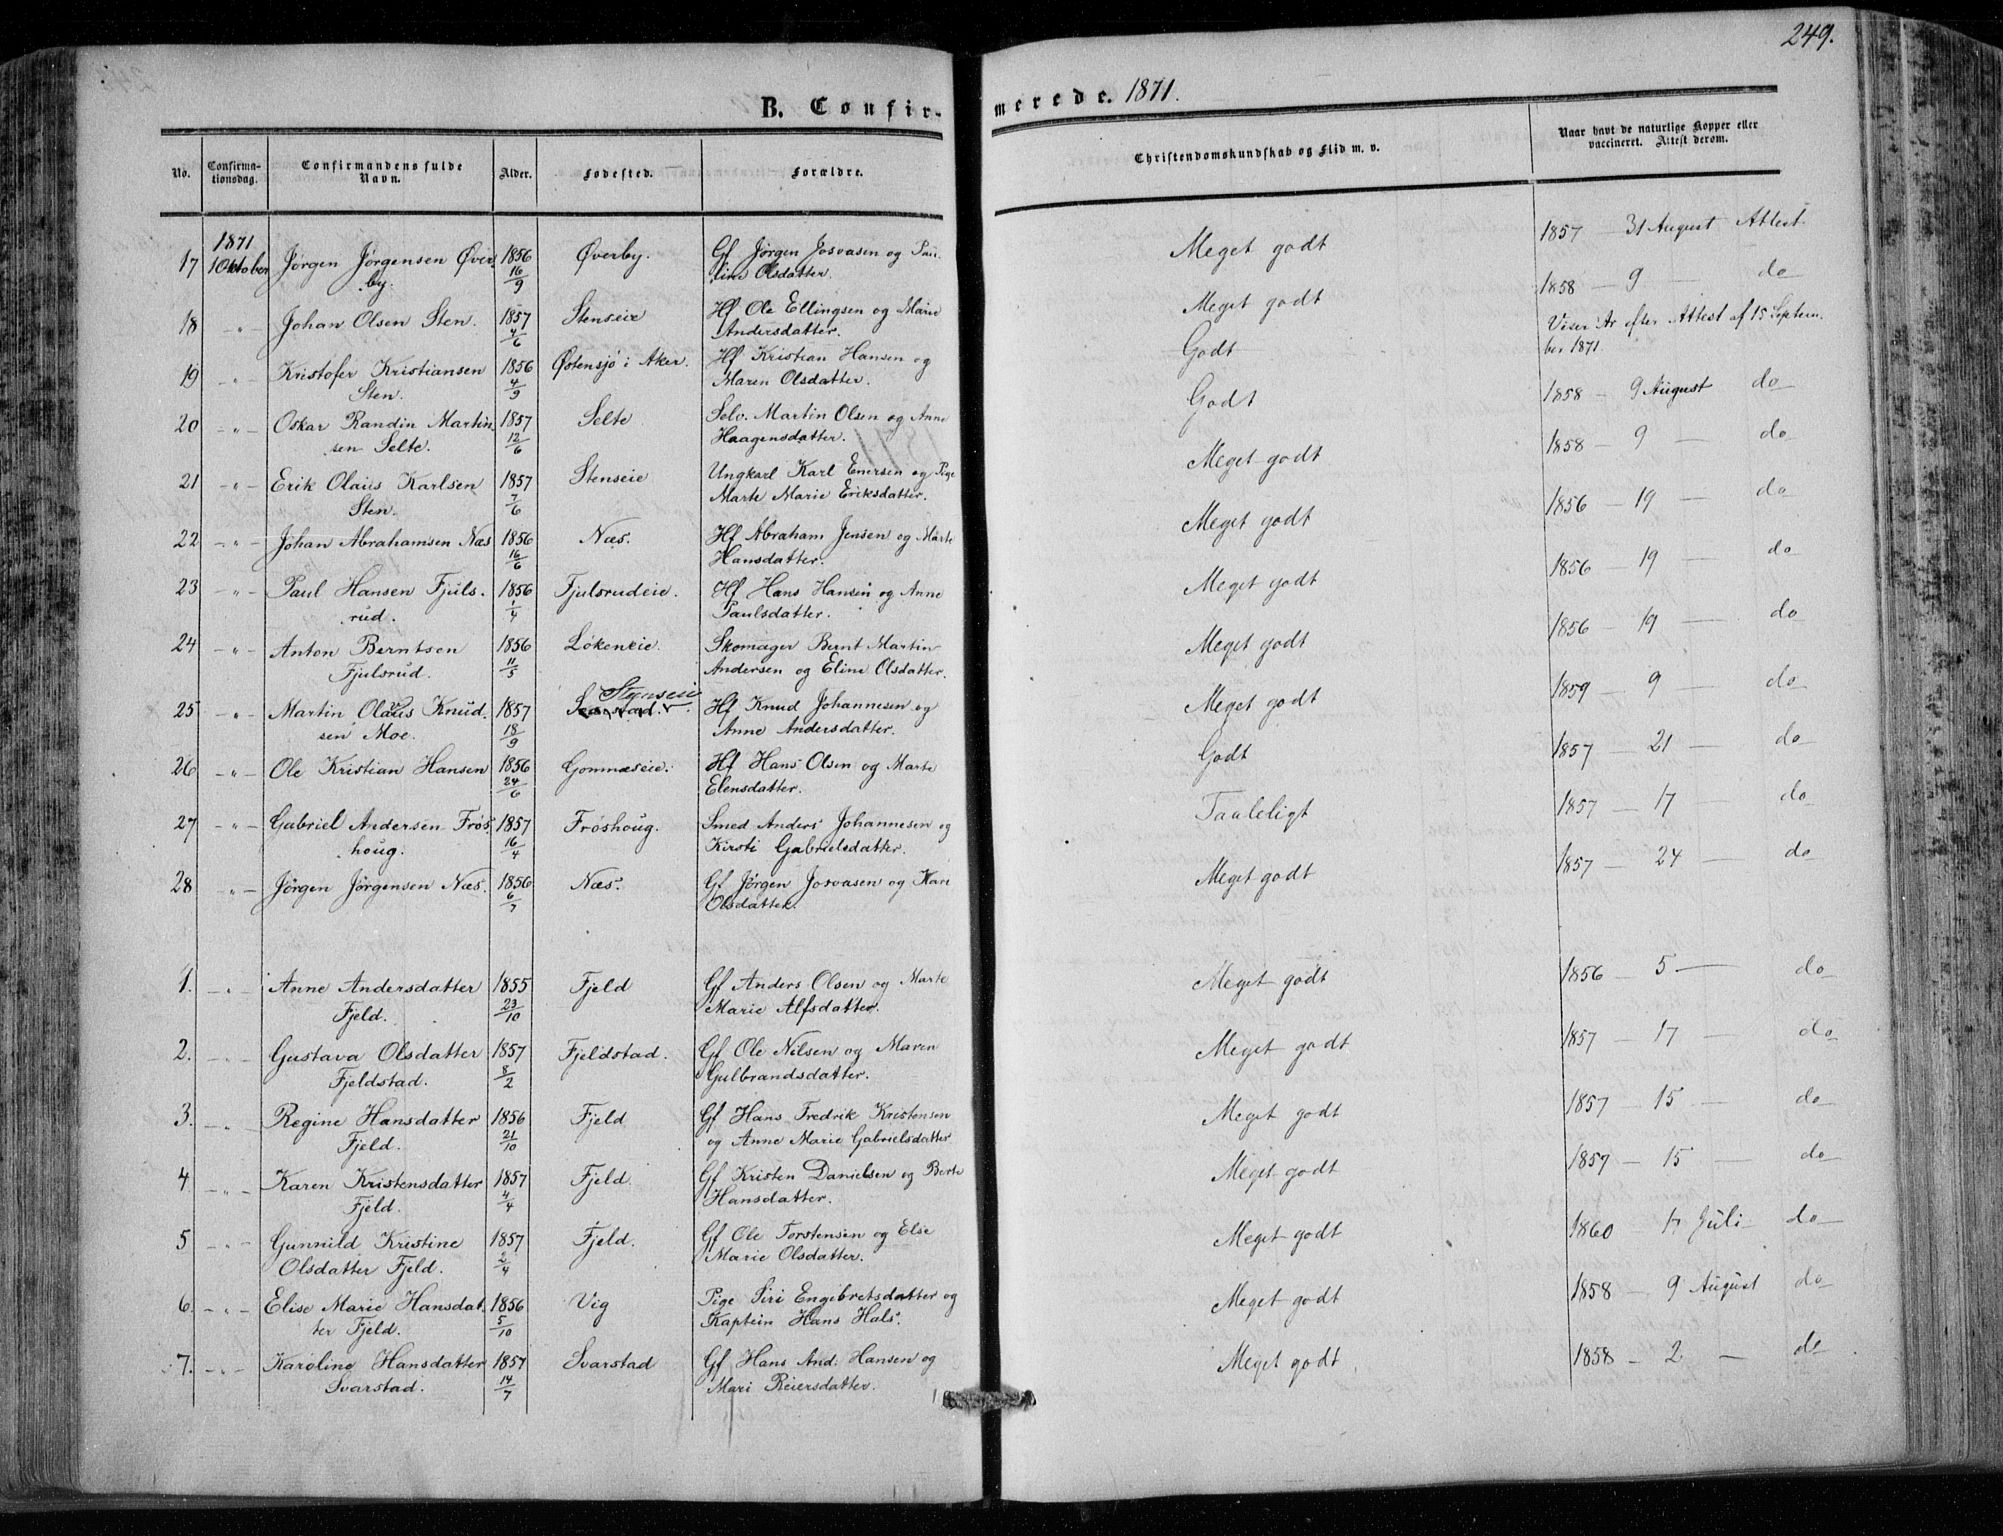 249.
B. Confir-
merede. 1871.
No.
Confirma-
tionsdag.
Confirmandens fulde
Navn.
Alder.
Fødested.
Forældre.
Christendomskundskab og Flid m. v.
Naar havt de naturlige Kopper eller
vaccineret. Attest derom.
1871
17 1 Oktober Jørgen Jørgensen Øver 1856 Øverby. Gf Jørgen Josvasen og Pau- Meget godt 1857 — 31 August Attest.
by. 16/9 line Olsdatter.
18 — " — Johan Olsen Sten. 1857 Stenseie Hf Ole Ellingsen og Marie Meget godt 1858 — 9 — do
4/6 Andersdatter.
19 — " — Kristofer Kristiansen 1856 Østensjø i Aker. Hf Kristian Hansen og Godt Viser Ar efter Attest af 15 Septem-
Sten. 4/9 Maren Olsdatter. ber 1871.
20 — " — Oskar Randin Martin 1857 Selte Selv. Martin Olsen og Anne Godt 1858 — 9 August do
sen Selte. 12/6 Haagensdatter.
21 — " — Erik Olaus Karlsen 1857 Stenseie Ungkarl Karl Enersen og Pige Meget godt 1858 — 9 — do
Sten. 7/6 Marte Marie Eriksdatter.
22 — " — Johan Abrahamsen Næs 1856 Næs. Hf Abraham Jensen og Marte Meget godt 1856 — 19 — do
16/6 Hansdatter.
23 — " — Paul Hansen Fjuls- 1856 Fjulsrudeie. Hf Hans Hansen og Anne Meget godt 1856 — 19 — do
rud. 1/4 Paulsdatter.
24 — " — Anton Berntsen 1856 Løkeneie. Skomager Bernt Martin Meget godt 1856 — 19 — do
Fjulsrud. 11/5 Andersen og Eline Olsdatter.
Stenseie
25 — " — Martin Olaus Knud- 1857 Svarstad. Hf Knud Johannesen og Meget godt 1859 — 9 — do
sen Moe. 18/9 Anne Andersdatter.
26 — " — Ole Kristian Hansen 1856 Gomnæseie. Hf Hans Olsen og Marte Godt 1857 — 21 — do
24/6 Elensdatter.
27 — " — Gabriel Andersen Frøs- 1857 Frøshoug. Smed Anders Johannesen og Taaleligt 1857 — 17 — do
houg. 16/4 Kirsti Gabrielsdatter.
28 — " — Jørgen Jørgensen Næs. 1856 Næs. Gf Jørgen Josvasen og Kari Meget godt 1857 — 24 — do
6/7 Olsdatter.
1. — " — Anne Andersdatter 1855 Fjeld Gf Anders Olsen og Marte Meget godt 1856 — 5 — do
Fjeld. 23/10 Marie Alfsdatter.
2. — " — Gustava Olsdatter 1857 Fjeldstad. Gf Ole Nilsen og Maren Meget godt 1857 — 17 — do
Fjeldstad. 8/2 Gulbrandsdatter.
3. — " — Regine Hansdatter 1856 Fjeld Gf Hans Fredrik Kristensen Meget godt 1857 — 15 — do
Fjeld. 21/10 og Anne Marie Gabrielsdatter
4 — " — Karen Kristensdatter 1857 Fjeld Gf Kristen Danielsen og Berte Meget godt 1857 — 15 — do
Fjeld. 4/4 Hansdatter.
5 — " — Gunnild Kristine 1857 Fjeld. Gf Ole Torstensen og Else Meget godt 1860 — 17 Juli — do
Olsdatter Fjeld. 2/4 Marie Olsdatter.
6. — " — Elise Marie Hansdat- 1856 Vig Pige Siri Engebretsdatter og Meget godt 1858 — 9 August do
ter Fjeld. 5/10 Kaptein Hans Hals.
7. — " — Karoline Hansdatter 1857 Svarstad Gf Hans And. Hansen og Meget godt 1858 — 2 — do
Svarstad. 14/7 Mari Reiersdatter.